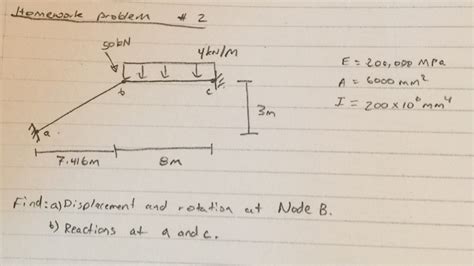 Homework problem # 2
50kN
4kN/M
b
c
a
3m
7.416m
8m
E = 200,000 MPa
A = 6000 mm²
I = 200 x 10⁶ mm⁴
Find: a) Displacement and rotation at Node B.
b) Reactions at a and c.